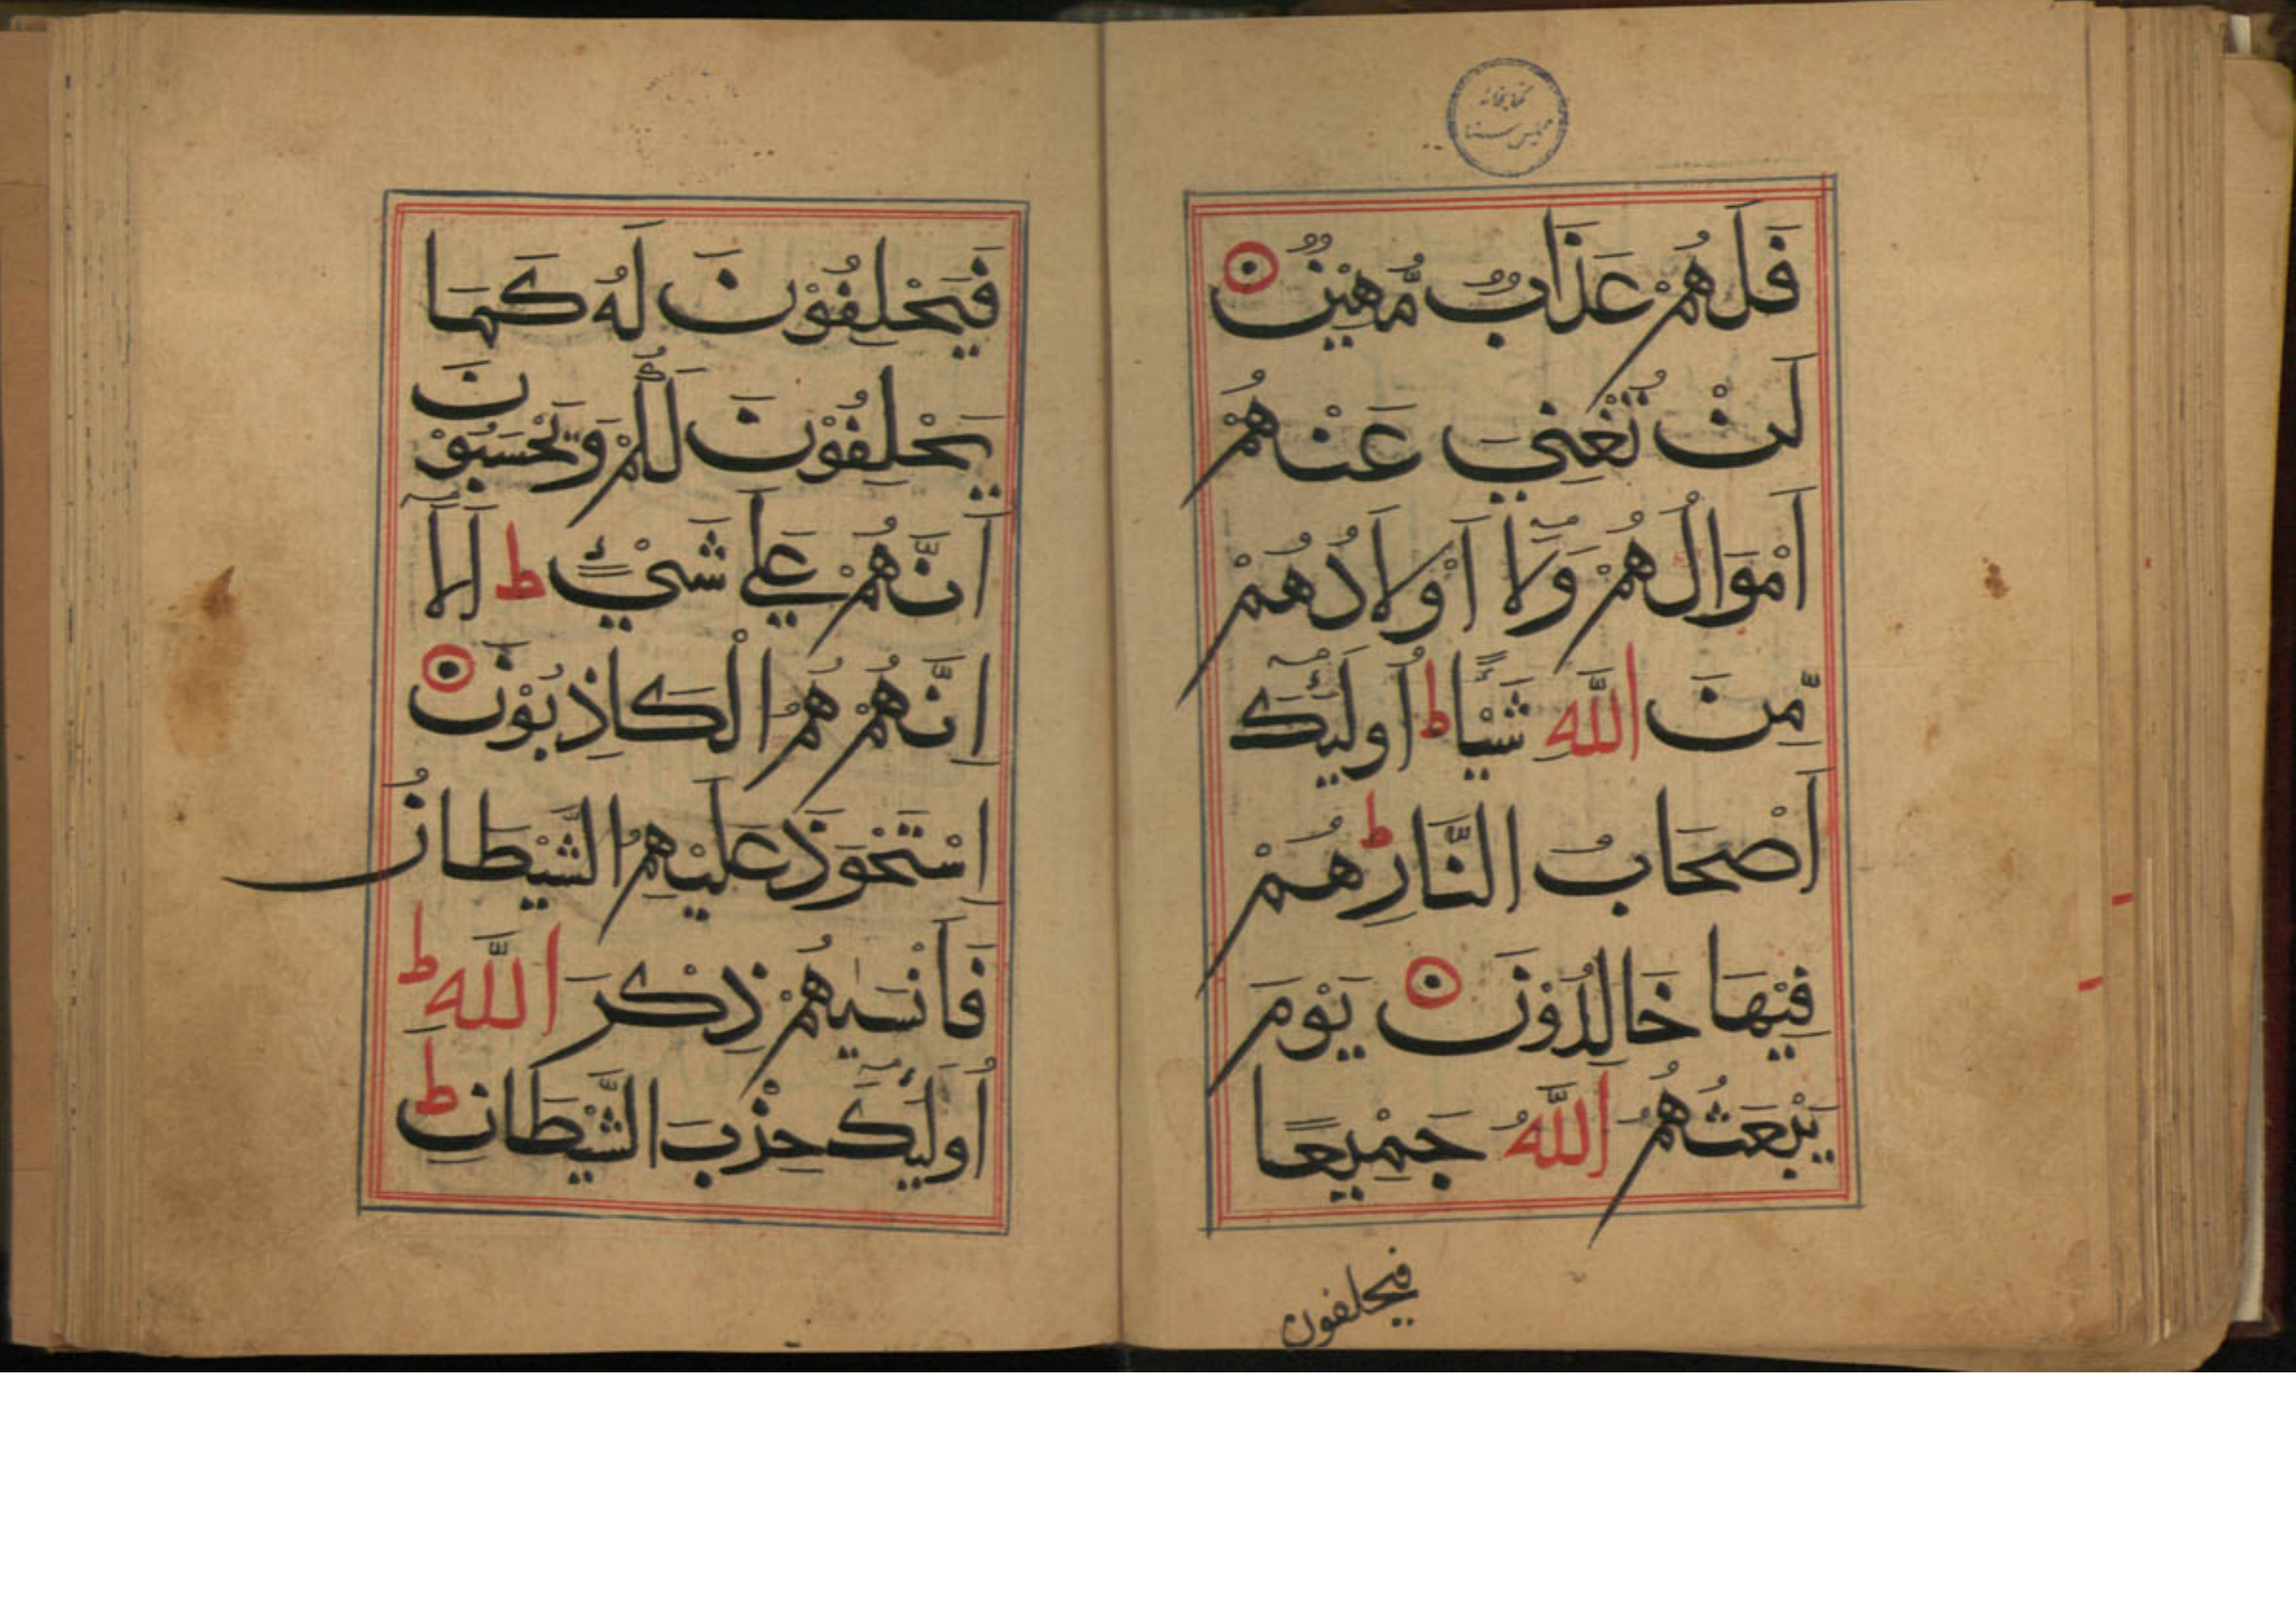 كتابخانه
مجلس سنا
فَلَهُمْ عَذَابٌ مُّهِيْنٌ
لَنْ تُغْنِيَ عَنْهُمْ
اَمْوَالُهُمْ وَلَآ اَوْلَادُهُمْ
مِّنَ اللّٰهِ شَيْـًٔا ط اُولٰٓئِكَ
اَصْحَابُ النَّارِ ط هُمْ
فِيْهَا خَالِدُوْنَ يَوْمَ
يَبْعَثُهُمُ اللّٰهُ جَمِيْعًا
فيحلفون
فَيَحْلِفُوْنَ لَهُ كَمَا
يَحْلِفُوْنَ لَكُمْ وَيَحْسَبُوْنَ
اَنَّهُمْ عَلٰي شَيْءٍ ط اَلَآ
اِنَّهُمْ هُمُ الْكَاذِبُوْنَ
اِسْتَحْوَذَ عَلَيْهِمُ الشَّيْطَانُ
فَاَنْسٰيهُمْ ذِكْرَ اللّٰهِ ط
اُولٰٓئِكَ حِزْبُ الشَّيْطَانِ ط